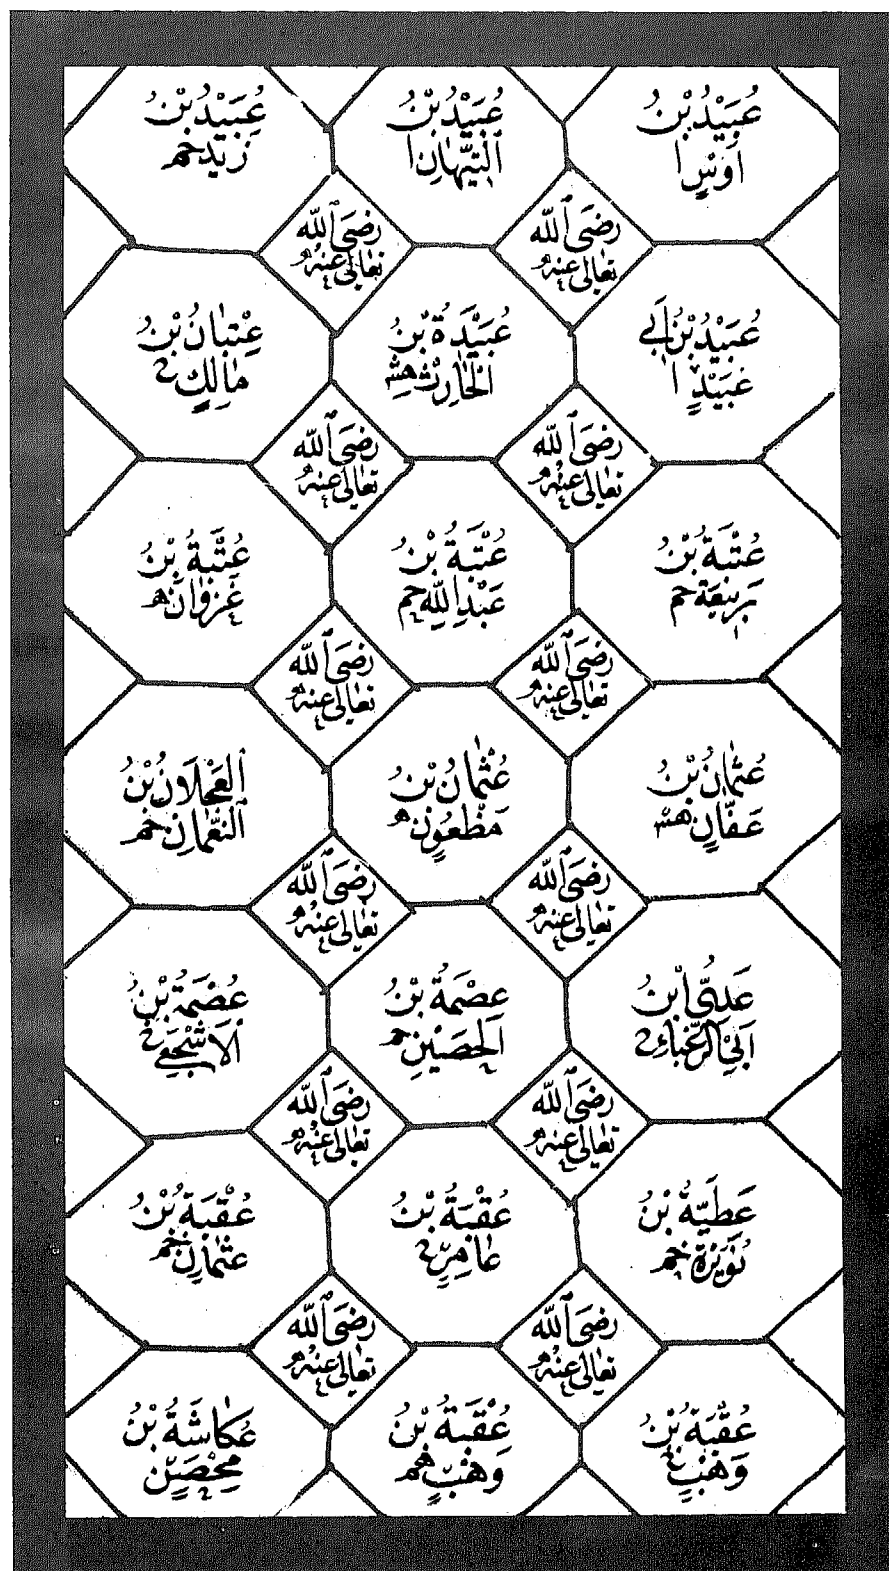 عُبَيْدُ بْنُ
اَوْسٍ ا
عُبَيْدُ بْنُ
التَّيِّهَانِ ا
عُبَيْدُ بْنُ
زَيْدٍ خم
رَضِىَ اللّٰه
تعالى عنه
رَضِىَ اللّٰه
تعالى عنه
عُبَيْدُ بْنُ اَبِي
عُبَيْدٍ ا
عُبَيْدَةُ بْنُ
الْحَارِثِ هش
عِتْبَانُ بْنُ
مَالِكٍ
رَضِىَ اللّٰه
تعالى عنه
رَضِىَ اللّٰه
تعالى عنه
عُتْبَةُ بْنُ
رَبِيعَةَ خم
عُتْبَةُ بْنُ
عَبْدِ اللّٰهِ خم
عُتْبَةُ بْنُ
غَزْوَانَ ه
رَضِىَ اللّٰه
تعالى عنه
رَضِىَ اللّٰه
تعالى عنه
عُثْمَانُ بْنُ
عَفَّانٍ هش
عُثْمَانُ بْنُ
مَظْعُونٍ ه
الْعَجْلَانُ بْنُ
النُّعْمَانِ خم
رَضِىَ اللّٰه
تعالى عنه
رَضِىَ اللّٰه
تعالى عنه
عَدِيُّ ابْنُ
اَبِي الزَّغْبَاءِ
عِصْمَةُ بْنُ
الْحُصَيْنِ خم
عُصْمَةُ بْنُ
الْاَشْجَعِي
رَضِىَ اللّٰه
تعالى عنه
رَضِىَ اللّٰه
تعالى عنه
عَطِيَّةُ بْنُ
نُوَيْرَةَ خم
عُقْبَةُ بْنُ
عَامِرٍ
عُقْبَةُ بْنُ
عثمان خم
رَضِىَ اللّٰه
تعالى عنه
رَضِىَ اللّٰه
تعالى عنه
عُقْبَةُ بْنُ
وَهْبٍ
عُقْبَةُ بْنُ
وَهْبٍ هم
عُكَاشَةُ بْنُ
مِحْصَنٍ